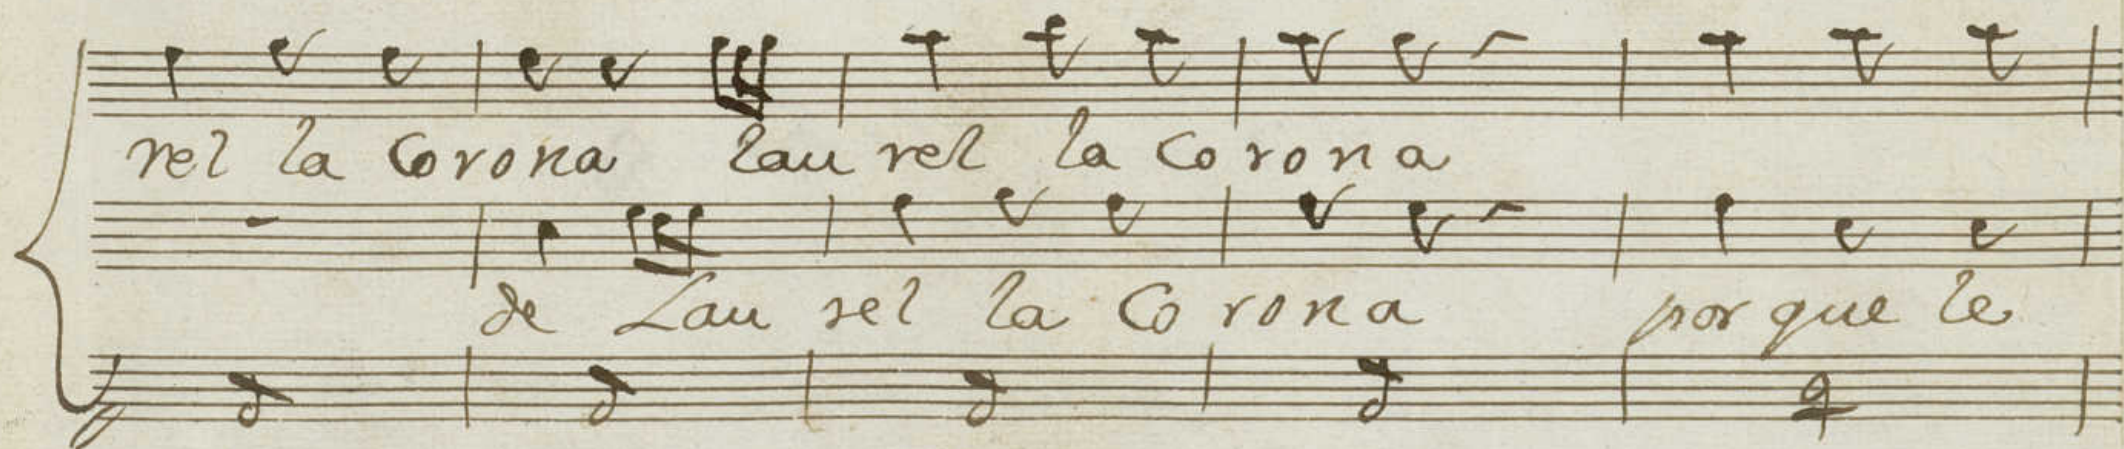 rel la Corona Lau rel la Corona
de Lau rel la Corona porque le